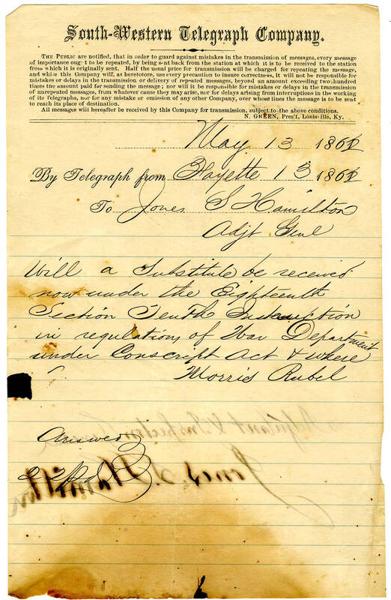 South-Western Telegraph Company.
THE PUBLIC are notified, that in order to guard against mistakes in the transmission of messages, every message
of importance ought to be repeated, by being sent back from the station at which it is to be received to the station
from which it is originally sent. Half the usual price for transmission will be charged for repeating the message,
and while this Company will, as heretofore, use every precaution to insure correctness, it will not be responsible
for mistakes or delays in the transmission or delivery of repeated messages, beyond an amount exceeding two hundred
times the amount paid for sending the message; nor will it be responsible for mistakes or delays in the transmission
of unrepeated messages, from whatever cause they may arise, nor for delays arising from interruptions in the working
of its Telegraphs, nor for any mistake or omission of any other Company, over whose lines the message is to be sent
to reach its place of destination.
All messages will hereafter be received by this Company for transmission, subject to the above conditions.
N. GREEN, Pres't, Louisville, Ky.
May 13 1862
By Telegraph from Fayette 13 1862
To Jones S Hamilton
Adjt Genl
Will a Substitute be received
now under the Eighteenth
Section Tenth
in regulations of War Department
under Conscript Act & where
Morris Rubel
Answer
Adjutant & Inspector
Jones S. Hamilton